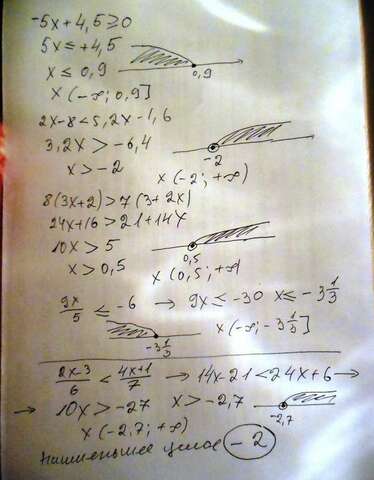 -5x + 4,5 ≥ 0
5x ≤ +4,5
x ≤ 0,9
0,9
x (-∞; 0,9]
2x - 8 < 5,2x - 1,6
3,2x > -6,4
-2
x > -2
x (-2; +∞)
8(3x+2) > 7(3+2x)
24x+16 > 21+14x
10x > 5
0,5
x > 0,5
x (0,5; +∞)
9x/5 ≤ -6 → 9x ≤ -30 x ≤ -3 1/3
-3 1/3
x (-∞; -3 1/3]
2x-3/6 < 4x+1/7 → 14x-21 < 24x+6 →
→ 10x > -27 x > -2,7
-2,7
x (-2,7; +∞)
Наименьшее целое -2